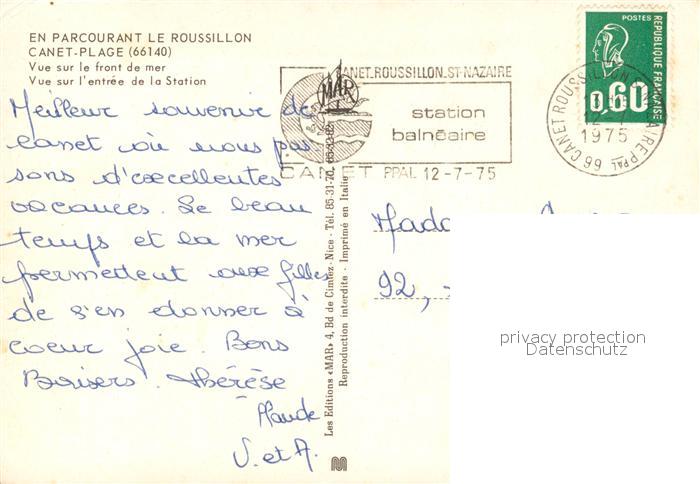 EN PARCOURANT LE ROUSSILLON
CANET-PLAGE (66140)
Vue sur le front de mer
Vue sur l'entrée de la Station
Meilleur souvenir de
canet où nous pas
sons d'excellentes
vacances. Le beau
temps et la mer
permettent aux filles
de s'en donner à
coeur joie. Bons
Baisers. thérèse
Claude
V. et A.
Les Editions «MAR» 4, Bd de Cimiez - Nice - Tél. 85-31-70,
Reproduction interdite - Imprimé en Italie
CANET_ROUSSILLON_ST-NAZAIRE
MAR
station
balnéaire
CANET PPAL 12-7-75
POSTES
REPUBLIQUE FRANÇAISE
0,60
66 CANET ROUSSILLON ST NAZAIRE PPAL
1975
92,
privacy protection
Datenschutz